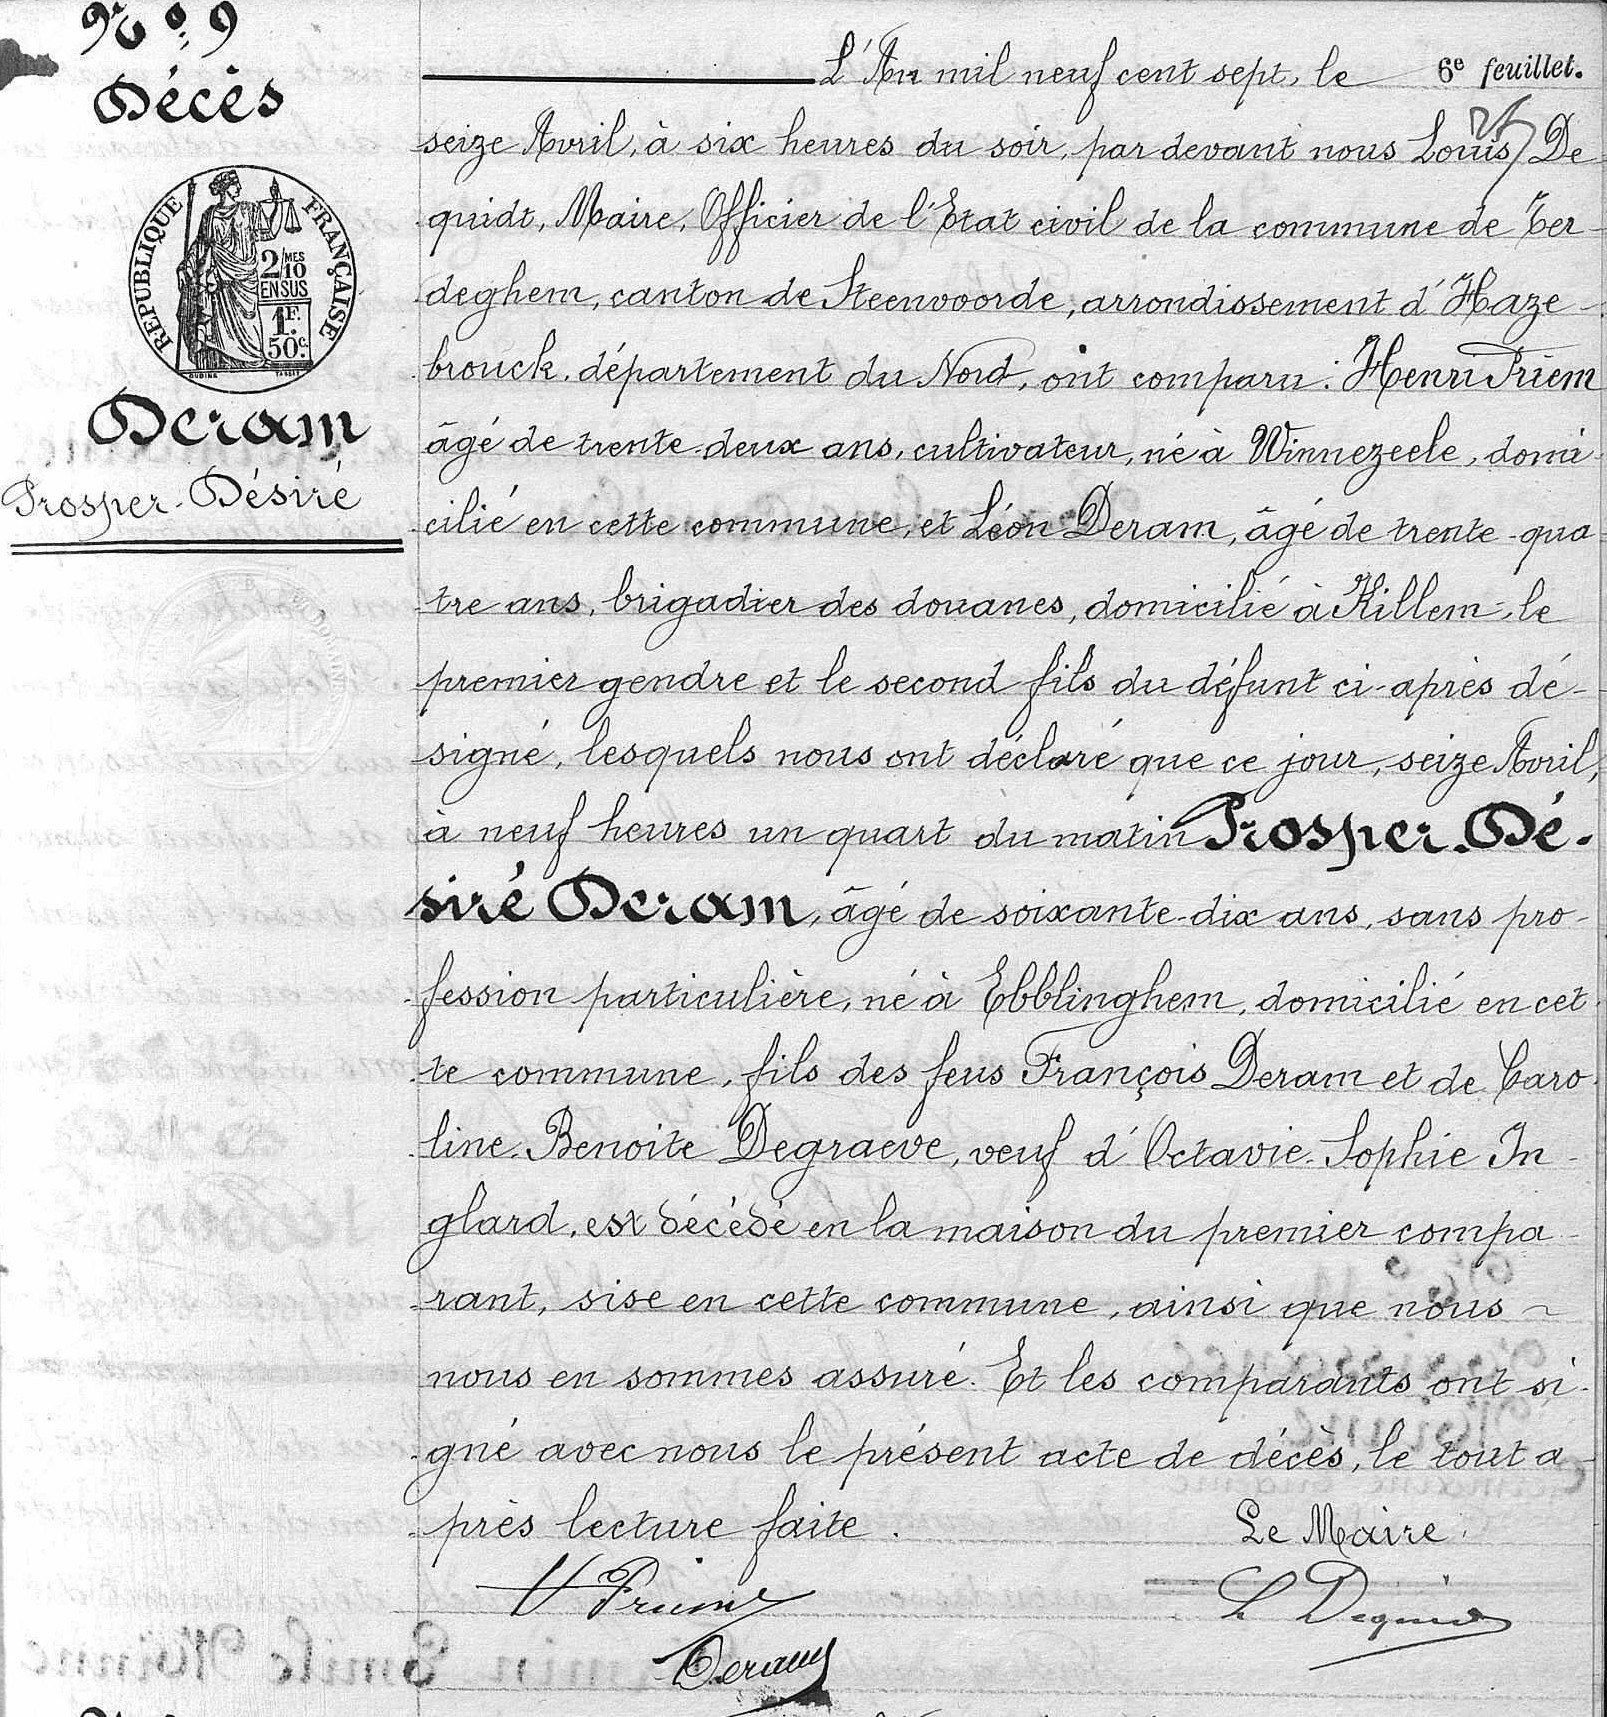 N° 9
Décès
REPUBLIQUE FRANÇAISE
2/MES
10
EN SUS
1F.
50c.
Deram
Prosper-Désiré
L'An mil neuf cent sept, le 6e feuillet.
seize Avril, à six heures du soir, par devant nous Louis De
quidt, Maire, Officier de l'Etat civil de la commune de Ter-
deghem, canton de Steenvoorde, arrondissement d'Haze-
brouck, département du Nord, ont comparu : Henri Priem
âgé de trente-deux ans, cultivateur, né à Winnezeele, domi-
cilié en cette commune, et Léon Deram, âgé de trente-qua-
tre ans, brigadier des douanes, domicilié à Killem, le
premier gendre et le second fils du défunt ci-après dé-
signé, lesquels nous ont déclaré que ce jour, seize Avril,
à neuf heures un quart du matin Prosper-Dé-
siré Deram, âgé de soixante-dix ans, sans pro-
fession particulière, né à Ebblinghem, domicilié en cet-
te commune, fils des feus François Deram et de Caro-
line-Benoite Degraeve, veuf d'Octavie-Sophie In-
glard, est décédé en la maison du premier compa-
rant, sise en cette commune, ainsi que nous ~
nous en sommes assuré. Et les comparants ont si-
gné avec nous le présent acte de décès, le tout a-
près lecture faite. Le Maire.
H Priem L Dequidt
Deram